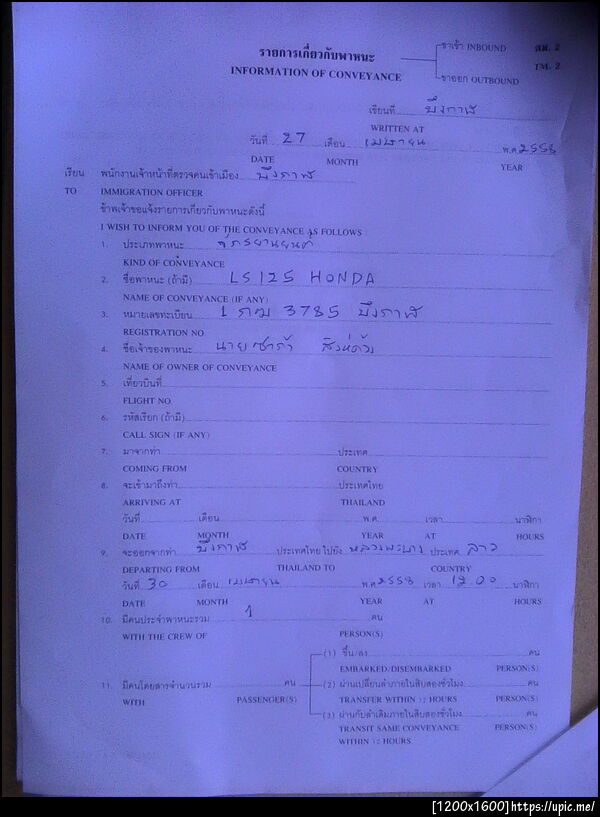 รายการเกี่ยวกับพาหนะ
INFORMATION OF CONVEYANCE
ขาเข้า INBOUND
ขาออก OUTBOUND
ตม. 2
TM. 2
เขียนที่ บึงกาฬ
WRITTEN AT
วันที่ 27 เดือน เมษายน พ.ศ 2558
DATE MONTH YEAR
เรียน พนักงานเจ้าหน้าที่ตรวจคนเข้าเมือง บึงกาฬ
TO IMMIGRATION OFFICER
ข้าพเจ้าขอแจ้งรายการเกี่ยวกับพาหนะดังนี้
I WISH TO INFORM YOU OF THE CONVEYANCE AS FOLLOWS
1. ประเภทพาหนะ จักรยานยนต์
KIND OF CONVEYANCE
2. ชื่อพาหนะ (ถ้ามี) LS 125 HONDA
NAME OF CONVEYANCE (IF ANY)
3. หมายเลขทะเบียน 1 3785 บึงกาฬ
REGISTRATION NO
4. ชื่อเจ้าของพาหนะ นาย
NAME OF OWNER OF CONVEYANCE
5. เที่ยวบินที่
FLIGHT NO
6. รหัสเรียก (ถ้ามี)
CALL SIGN (IF ANY)
7. มาจากท่า ประเทศ
COMING FROM COUNTRY
8. จะเข้ามาถึงท่า ประเทศไทย
ARRIVING AT THAILAND
วันที่ เดือน พ.ศ. เวลา นาฬิกา
DATE MONTH YEAR AT HOURS
9. จะออกจากท่า บึงกาฬ ประเทศไทย ไปยัง หลวงพระบาง ประเทศ ลาว
DEPARTING FROM THAILAND TO COUNTRY
วันที่ 30 เดือน เมษายน พ.ศ 2558 เวลา 12 00 นาฬิกา
DATE MONTH YEAR AT HOURS
10. มีคนประจำพาหนะรวม 1 คน
WITH THE CREW OF PERSON(S)
11. มีคนโดยสารจำนวนรวม คน
WITH PASSENGER(S)
(1) ขึ้น/ลง คน
EMBARKED/DISEMBARKED PERSON(S)
(2) ผ่านเปลี่ยนลำภายในสิบสองชั่วโมง คน
TRANSFER WITHIN 12 HOURS PERSON(S)
(3) ผ่านกับลำเดิมภายในสิบสองชั่วโมง คน
TRANSIT SAME CONVEYANCE PERSON(S)
WITHIN 12 HOURS
[1200x1600]https://upic.me/